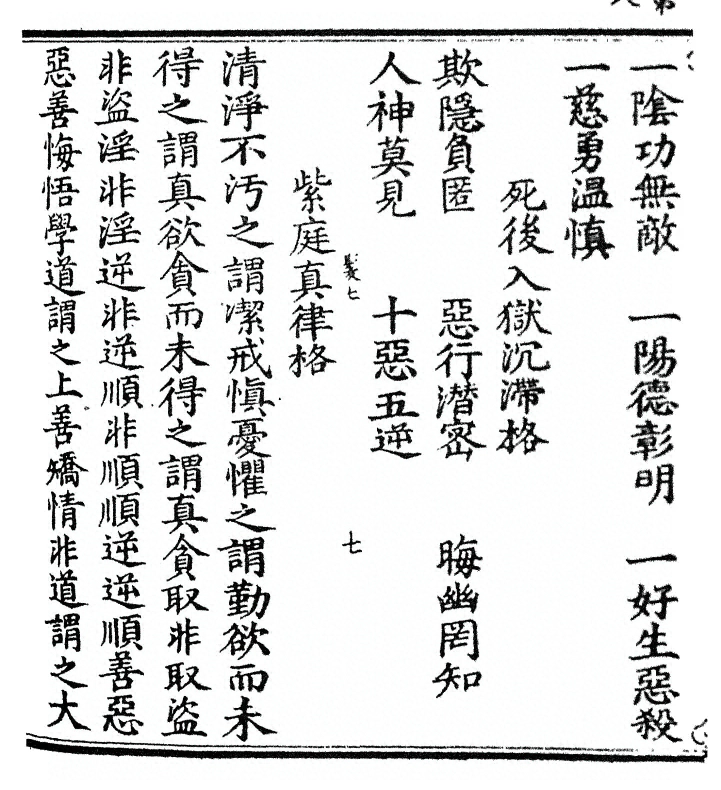 一陰功無敵　一陽德彰明　一好生惡殺
一慈勇温慎
死後入獄沉滯格
欺隱負匿　惡行潜密　晦幽罔知
人神莫見　十惡五逆
七
紫庭真律格
清淨不汚之謂潔戒愼憂懼之謂勤欲而未
得之謂真欲貪而未得之謂真貪取非取盜
非盜淫非淫逆非逆順非順順逆逆順善惡
惡善悔悟學道謂之上善矯情非道謂之大